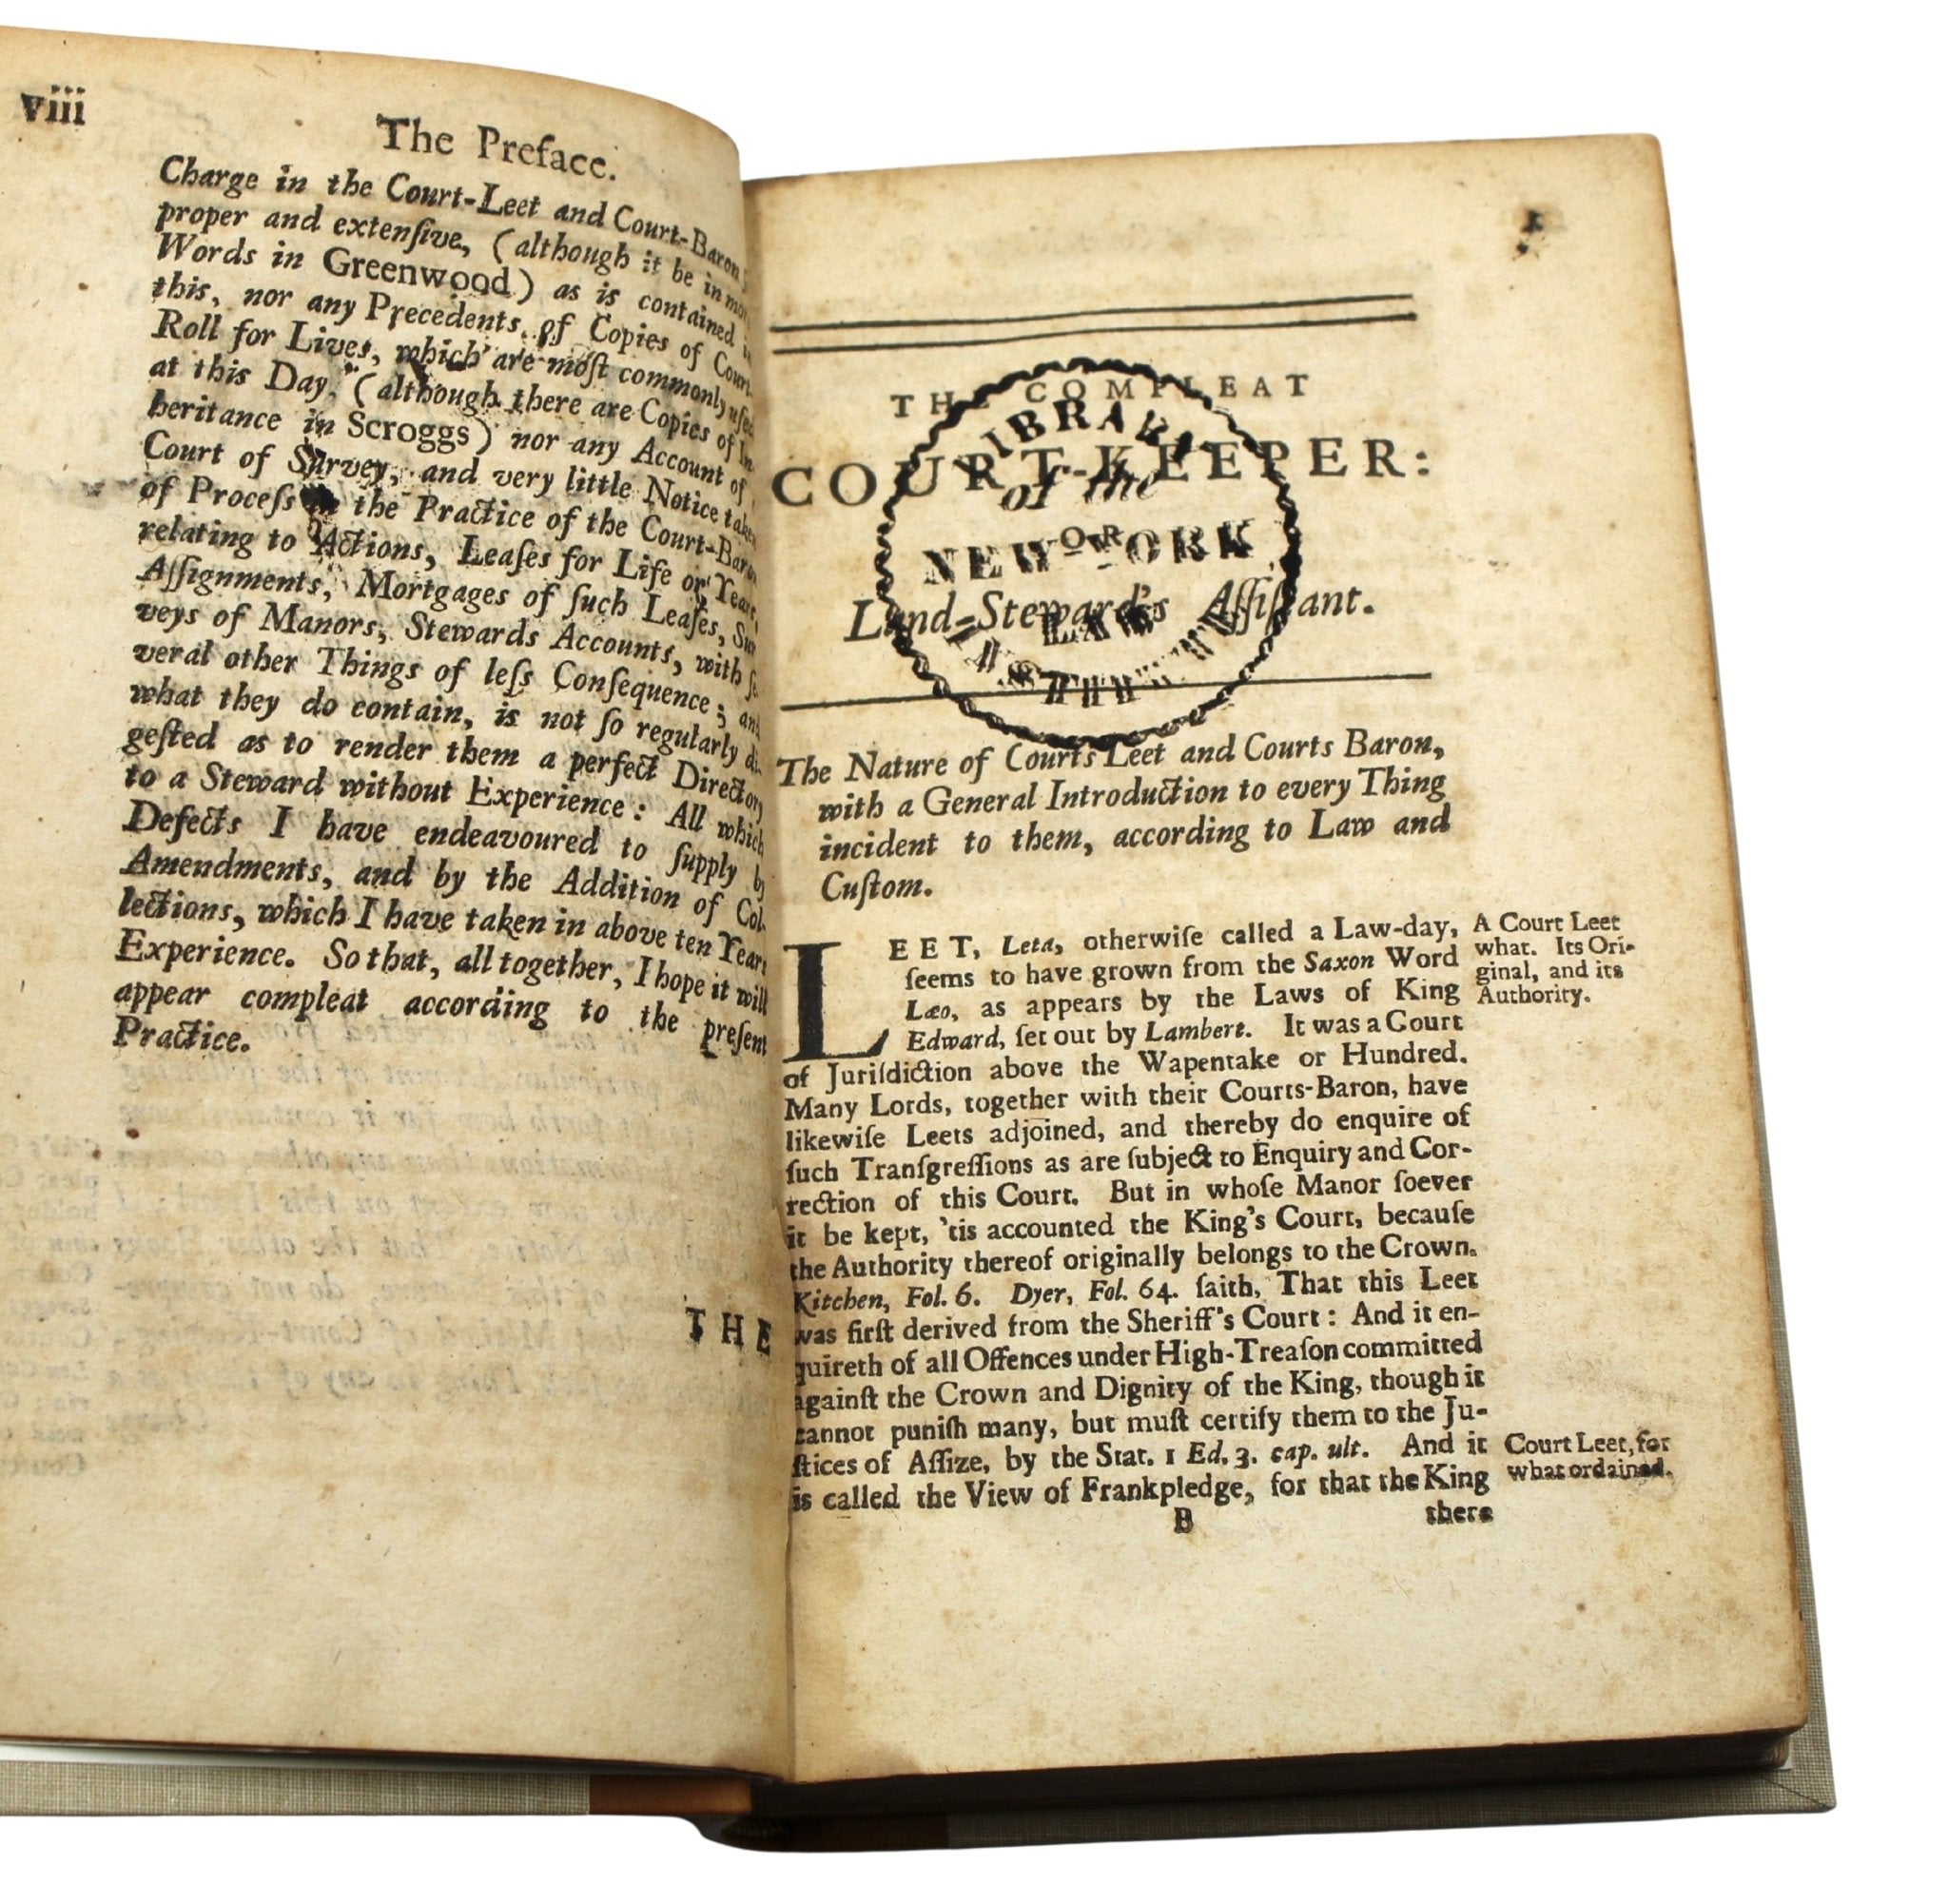 viii
The Preface.
Charge in the Court-Leet and Court-Baron
proper and extenſive, (although it be in
Words in Greenwood) as is contained
this, nor any Precedents of Copies of Court
Roll for Lives, which are moſt commonly uſed
at this Day, (although there are Copies of In-
heritance in Scroggs) nor any Account of
Court of Survey, and very little Notice taken
of Proceſs the Practice of the Court-Baron
relating to Actions, Leaſes for Life or Years,
Aſſignments, Mortgages of ſuch Leaſes, Sur
veys of Manors, Stewards Accounts, with ſe
veral other Things of leſs Conſequence; and
what they do contain, is not ſo regularly di-
geſted as to render them a perfect Directory
to a Steward without Experience: All which
Defects I have endeavoured to ſupply by
Amendments, and by the Addition of Col-
lections, which I have taken in above ten Years
Experience. So that, all together, I hope it will
appear compleat according to the preſent
Practice.
THE
1
THE COMPLEAT
COURT-KEEPER:
OR
Land-Steward's Aſſiſtant.
LIBRARY
of the
NEW YORK
LAW
INSTITUTE
The Nature of Courts Leet and Courts Baron,
with a General Introduction to every Thing
incident to them, according to Law and
Cuſtom.
LEET, Leta, otherwiſe called a Law-day,
ſeems to have grown from the Saxon Word
Læo, as appears by the Laws of King
Edward, ſet out by Lambert. It was a Court
of Juriſdiction above the Wapentake or Hundred.
Many Lords, together with their Courts-Baron, have
likewiſe Leets adjoined, and thereby do enquire of
ſuch Tranſgreſſions as are ſubject to Enquiry and Cor-
rection of this Court. But in whoſe Manor ſoever
it be kept, 'tis accounted the King's Court, becauſe
the Authority thereof originally belongs to the Crown.
Kitchen, Fol. 6. Dyer, Fol. 64. ſaith, That this Leet
was firſt derived from the Sheriff's Court: And it en-
quireth of all Offences under High-Treaſon committed
againſt the Crown and Dignity of the King, though it
cannot puniſh many, but muſt certify them to the Ju-
ſtices of Aſſize, by the Stat. 1 Ed. 3. cap. ult. And it
is called the View of Frankpledge, for that the King
B there
A Court Leet
what. Its Ori-
ginal, and its
Authority.
Court Leet, for
what ordained.